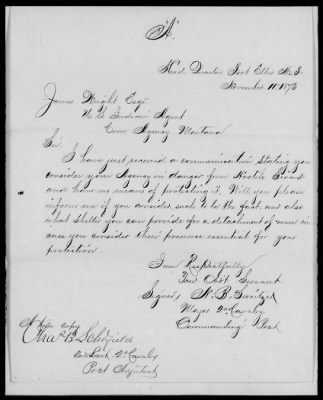 "A"
Head Quarters Fort Ellis M.T.
November 11, 1873
James Wright Esqr
U.S. Indian Agent
Crow Agency Montana
Sir
I have just received a communication stating you
consider your Agency in danger from Hostile Sioux
and have no means of protecting it. Will you please
inform me if you consider such to be the fact and also
what shelter you can provide for a detachment of men in
case you consider their presence essential for your
protection.
I am Respectfully
Your Obdt Servant
Signed, N. B. Sweitzer
Major 2nd Cavalry
Commanding Post
A true copy
B Schofield
Lieut. 2d Cavalry
Post Adjutant